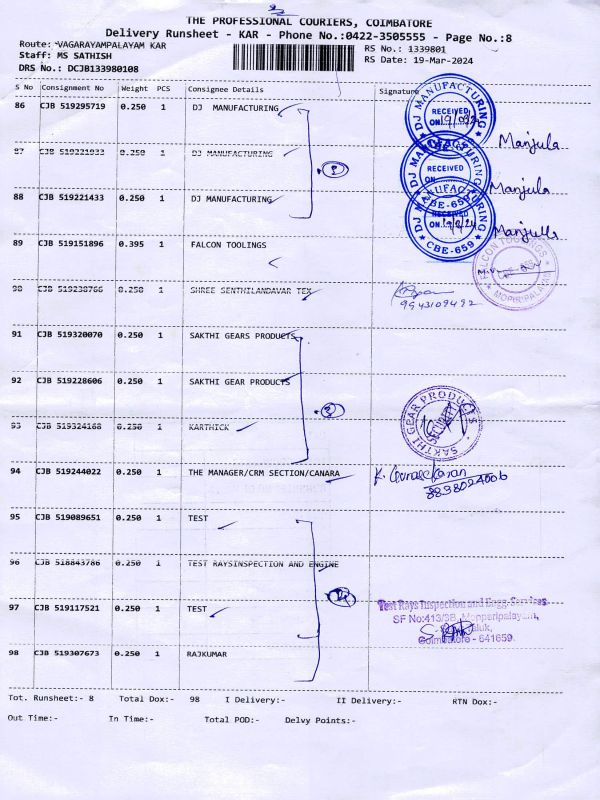 THE PROFESSIONAL COURIERS, COIMBATORE
Delivery Runsheet - KAR - Phone No.:0422-3505555 - Page No.:8
Route: VAGARAYAMPALAYAM KAR RS No.: 1339801
Staff: MS SATHISH RS Date: 19-Mar-2024
DRS No.: DCJB133980108
S No Consignment No Weight PCS Consignee Details Signature
86 CJB 519295719 0.250 1 DJ MANUFACTURING
DJ MANUFACTURING RECEIVED ON Manjula
87 CJB 519221933 0.250 1 DJ MANUFACTURING
Manjula
88 CJB 519221433 0.250 1 DJ MANUFACTURING
DJ MANUFACTURING CBE-659 RECEIVED ON
89 CJB 519151896 0.395 1 FALCON TOOLINGS
FALCON TOOLINGS
90 CJB 519238766 0.250 1 SHREE SENTHILANDAVAR TEX
9943109492
91 CJB 519320070 0.250 1 SAKTHI GEARS PRODUCTS
92 CJB 519228606 0.250 1 SAKTHI GEAR PRODUCTS
SAKTHI GEAR PRODUCTS
93 CJB 519324168 0.250 1 KARTHICK
94 CJB 519244022 0.250 1 THE MANAGER/CRM SECTION/CANARA
K. Gunasekaran
95 CJB 519089651 0.250 1 TEST
96 CJB 518843786 0.250 1 TEST RAYSINSPECTION AND ENGINE
97 CJB 519117521 0.250 1 TEST
Test Rays Inspection and Engg. Services
SF No:413/3B, Mopperipalayam,
Coimbatore - 641659.
98 CJB 519307673 0.250 1 RAJKUMAR
Tot. Runsheet:- 8 Total Dox:- 98 I Delivery:- II Delivery:- RTN Dox:-
Out Time:- In Time:- Total POD:- Delvy Points:-